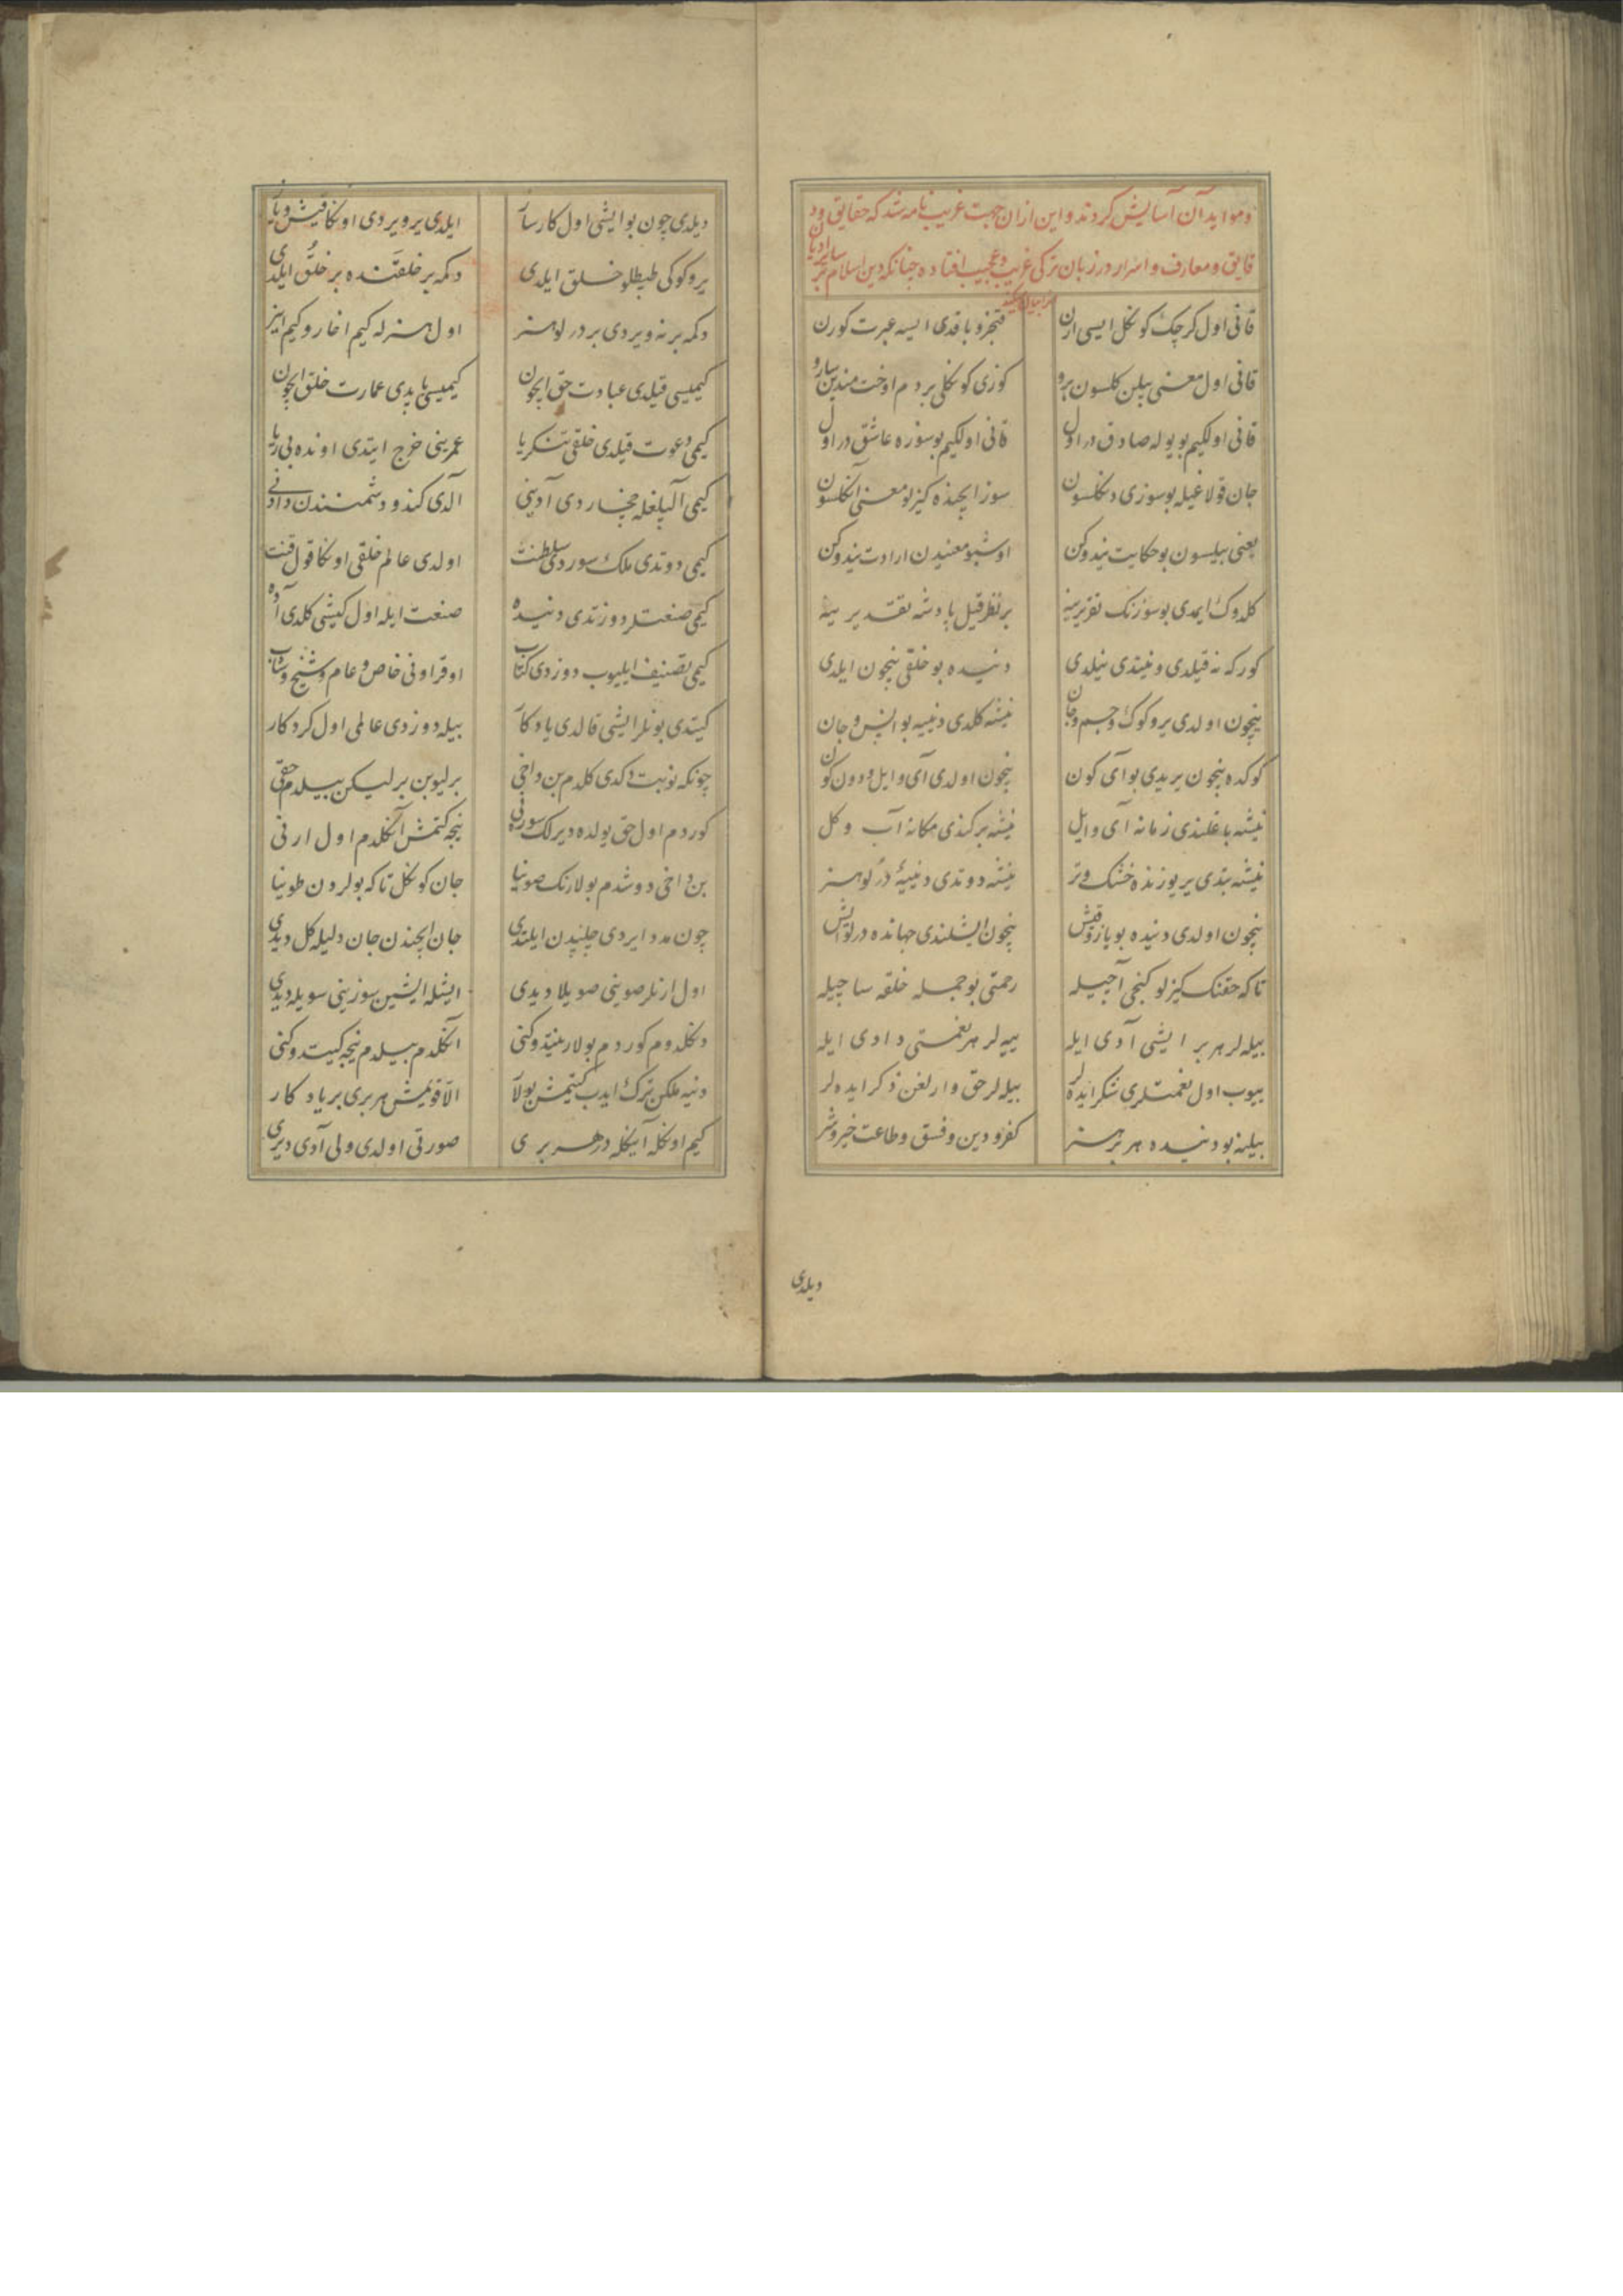 و مواید آن آسایش کردند و این از ان جهت غریب نامه شد که حقایق و د
قایق و معارف و اسرار در زبان ترکی غریب و عجیب افتاده چنانکه دین اسلام
قانی اول کرچک کوکل ایسی ارن قنجرو باقدی ایسه عبرت کورن
قانی اول معنی بیلن کلسون برو کوزی کوکلی بر دم اوخت مندین سارو
قانی اولکیم بو یوله صادق در اول قانی اولکیم بو سوزه عاشق در اول
جان قولاغیله بو سوزی دکلسون سوز ایچنده کیزلو معنی آکلسون
معنی بیلسون بو حکایت نیدوکن اوشبو معنیدن ارادت نیدوکن
کلدوک ایمدی بو سوزنک تقریرینه بر نظر قیل پادشه تقدیرینه
کور که نه قیلدی و نیتدی نیلدی دنیده بو خلقی نیچون ایلدی
نیچون اولدی یر و کوک و جسم و جان نیشه کلدی دنییه بو انس و جان
کوکده نیچون یریدی بو آی کون نیچون اولدی آی و ایل و دون کون
نیشه باغلندی زمانه آی و ایل نیشه برکندی مکانه آب و کل
نیشه بتدی یر یوزنده خشک و تر نیشه دوتدی دنییه درلو هنر
نیچون اولدی دنیده بو یاز و قیش نیچون ایشلندی جهانده درلو ایش
تا که حقنک کیزلو کنجی آچیله رحمتی بو جمله خلقه ساچیله
بیله لر هر بر ایشی آدی ایله ییه لر هر نعمتی دادی ایله
ییوب اول نعمتلری شکر ایده لر بیله لر حق وارلغن ذکر ایده لر
بیلنه بو دنیده هر بر هنر کفر و دین و فسق و طاعت خیر و شر
دیلدی
دیلدی چون بو ایشی اول کارساز ایلدی یر ویردی اوکا قیش و یاز
یر و کوکی طپطلو خلق ایلدی دکمه بر خلقتنده بر خلق ایلدی
دکمه برنه ویردی بر درلو هنر اول هنرله کیم اغار و کیم اینر
کیمیسی قیلدی عبادت حق ایچون کیمیسی یاپدی عمارت خلق ایچون
کیمی دعوت قیلدی خلقی تنکریا عمرینی خرج ایتدی اونده بی ریا
کیمی آلپلغله چخاردی آدینی آلدی کندو دشمنندن دادنی
کیمی دوتدی ملک سوردی سلطنت اولدی عالم خلقی اوکا قول قنت
کیمی صنعتلر دوزتدی دنیده صنعت ایله اول کیشی کلدی آده
کیمی تصنیف ایلیوب دوزدی کتاب اوقر اونی خاص و عام و شیخ و شاب
کیتدی بونلر ایشی قالدی یادکار بیله دوزدی عالمی اول کردکار
چونکه نوبت دکدی کلدم بن داخی برلیوبن بر لیکن بیلدم حقی
کوردم اول حق یولده دیرلک سورنی نیجه کتمش آکلدم اول ارنی
بن داخی دوشدم بولارنک صوینا جان کوکل تا که بولردن طوینا
چون مدد ایردی چلپدن ایلتدی جان ایچندن جان دلیله کل دیدی
اول ارنلر صوینی صویلا دیدی ایشله ایشین سوزینی سویله دیدی
دکلدوم کوردم بولار نیتدوکنی آکلدم بیلدم نیجه کیتدوکنی
دنیه ملکن ترک ایدب کیتمش بولار الا قویمش هر بری بر یادکار
کیم اوکله آیکله در هر بری صورتی اولدی ولی آدی دیری